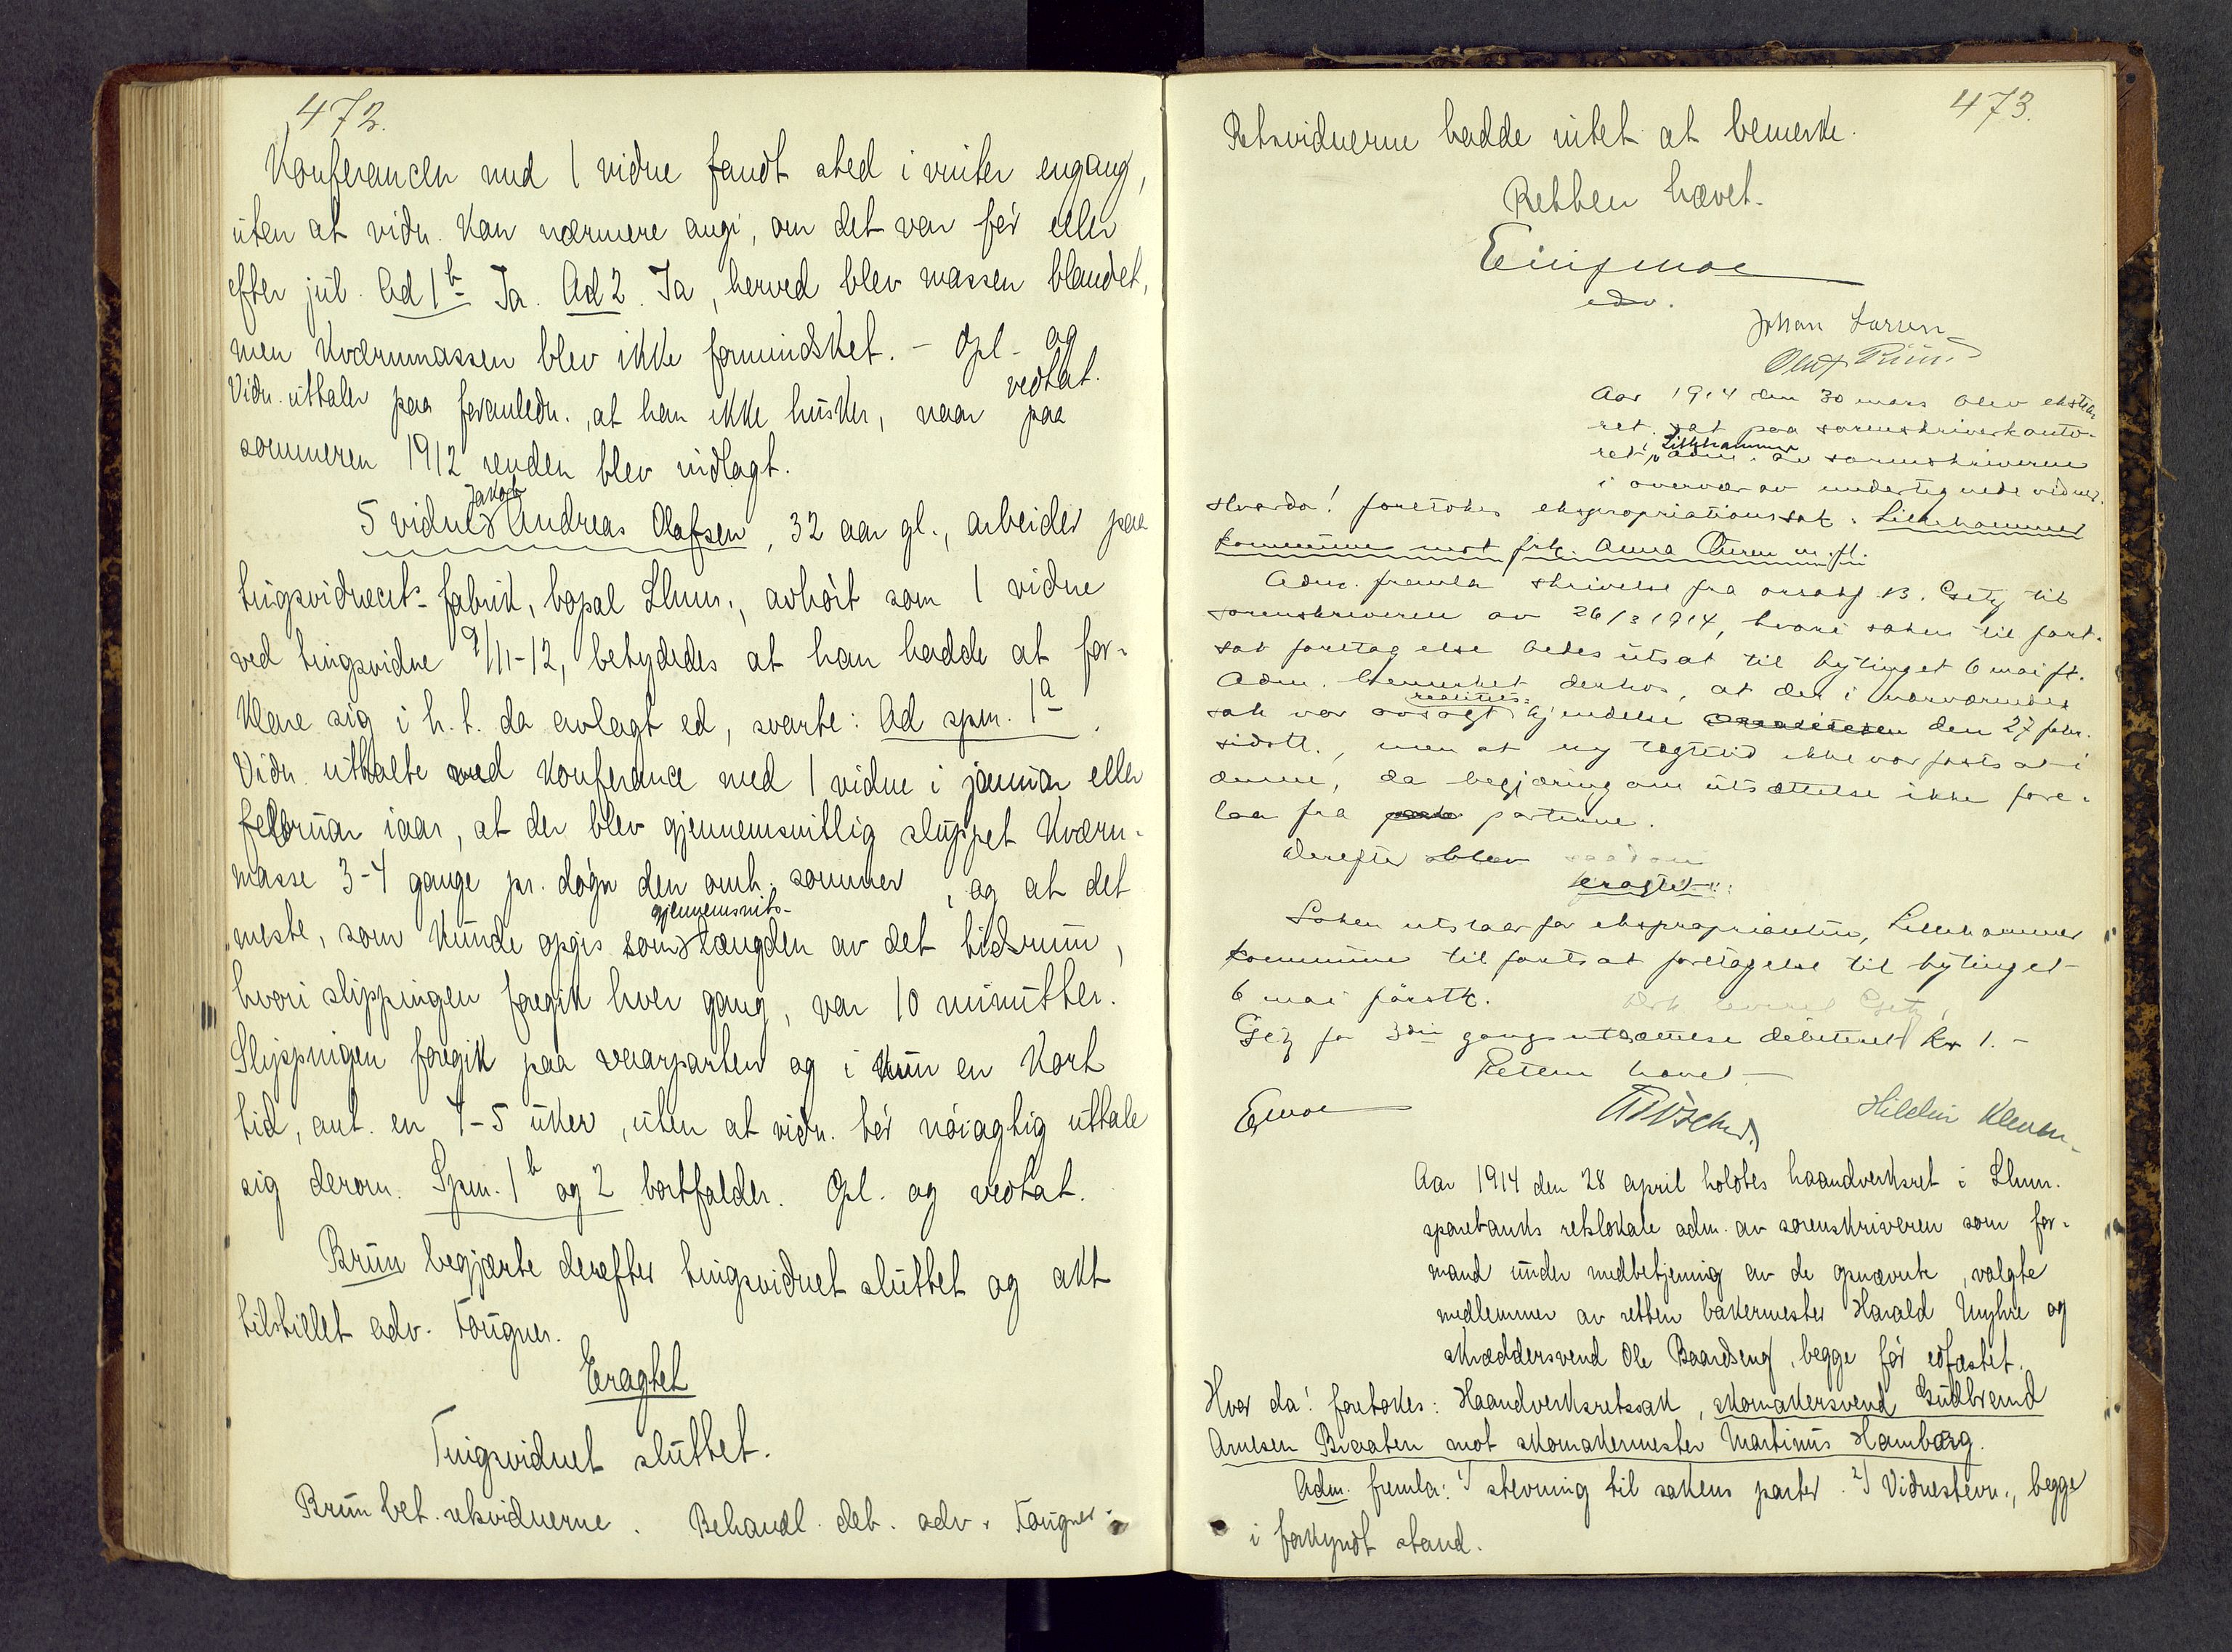 472.
Konferancen med 1 vidne fandt sted i vinter engang,
uten at vidn. kan nærmere angi, om det var før eller
efter jul. Ad 1b Ja. Ad 2. Ja, herved blev massen blandet,
men kværnmassen blev ikke formindsket. - Opl. og
vedtat.
Vidn. uttaler paa foranledn., at han ikke husker, naar paa
sommeren 1912 renden blev nidlagt.
5 vidne Jakob Andreas Olafsen, 32 aar gl., arbeider paa
tingsvidnets fabrik, bopal Lhmr., avhørt som 1 vidne
ved tingsvidne 9/11-12, betydedes at han hadde at for-
klare sig i h. t. da avlagt ed, svarte: Ad spm. 1a.
Vidn. uttalte ved konferance med 1 vidne i januar eller
februar iaar, at der blev gjennemsnitlig sluppet kværn-
masse 3-4 gange pr. døgn den omh. sommer, og at det
meste, som kunde opgis som gjennemsnits- længden av det tidsrum,
hvori slippingen foregik hver gang, var 10 minutter.
Slippingen foregik paa vaarparten og i kun en kort
tid, ant. en 4-5 uker, uten at vidn. tør nøiagtig uttale
sig derom. Spm. 1b og 2 bortfalder. Opl. og vedtat.
Brun begjærte derefter tingsvidnet sluttet og akt
tilstillet adv. Fougner.
Eragtet
Tingsvidnet sluttet.
Brun bet. retsvidnerne. Behandl. deb. adv. Fougner.
473.
Retsvidnerne hadde intet at bemerke.
Retten hævet.
Einar Moe
edv.
Johan Larsen
Aar 1914 den 30 mars blev ekstra
ret sat paa sorenskriverkonto-
ret i Lillehammer adm. av sorenskriveren
i overvær av undertegnede vidner.
Hvorda! foretokes ekspropriationssak: Lillehammer
kommune mot frk. Anna Thuren m. fl.
Adm. fremla skrivelse fra orsakf. B. Getz til
sorenskriveren av 26/3 1914, hvori saken til fort-
sat foretagelse bedes utsat til bytinget 6 mai ft.
Adm. bemerket derhos, at der i nærværende
sak var avsagt realitets- kjendelse den 27 febr.
sidstl., men at ny tegttid ikke var fastsat i
denne, da begjæring om utsættelse ikke fore-
laa fra partene.
Derefter blev saadan
eragtet:
Saken utstaar for ekspropriantinen, Lillehammer
kommune til fortsat foretagelse til bytinget
6 mai førstk.
Getz
Geb for 3die gangs utsættelse debiteret kr 1.-
Retten hævet
EMoe
Hilda Kleven
Aar 1914 den 28 april holdtes haandverksret i Lhmr.
sparebanks retslokale adm. av sorenskriveren som for-
mand under medbetjening av de opnævnte, valgte
medlemmer av retten bakermester Harald Myhre og
skræddersvend Ole Baardseng, begge før edfæstet.
Hvor da! foretokes: Haandverksretssak, skomakersvend Gudbrand
Arnesen Braaten mot skomakermester Martinus Hamborg.
Adm. fremla: 1) stevning til sakens parter. 2) Vidnestevn., begge
i forkyndt stand.